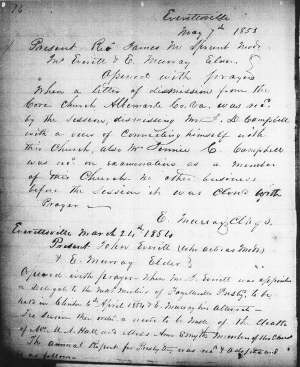 76
Everittsville
May 7th 1853
Present Rev James M Sprunt Mod.
Jno Everitt & E. Murray Elders
Opened with prayer
When a letter of dismission from the
Cove Church Albemarle Co. Va. was recd
by the Session, dismissing Mr. D Campbell
with a view of Connecting himself with
this Church, also Mr C Campbell
was recd on examination as a member
of this Church. No other business
before the Session it was Closed with
Prayer
E. Murray Clk of S.
Everittsville March 24th 1854
Present John Everitt
& E. Murray Elders
Opened with prayer When Mr J. Everitt was appointed
a delegate to the next meeting of Fayetteville Presby. to be
held in Clinton 6th April 1854 & E Murray his alternate
The Session then ordered a note to be made of the Death
of Mr. Hall and Miss Ann Smyth Members of this Church
The annual Report for Presbytery was recd & adopted and
is as follows